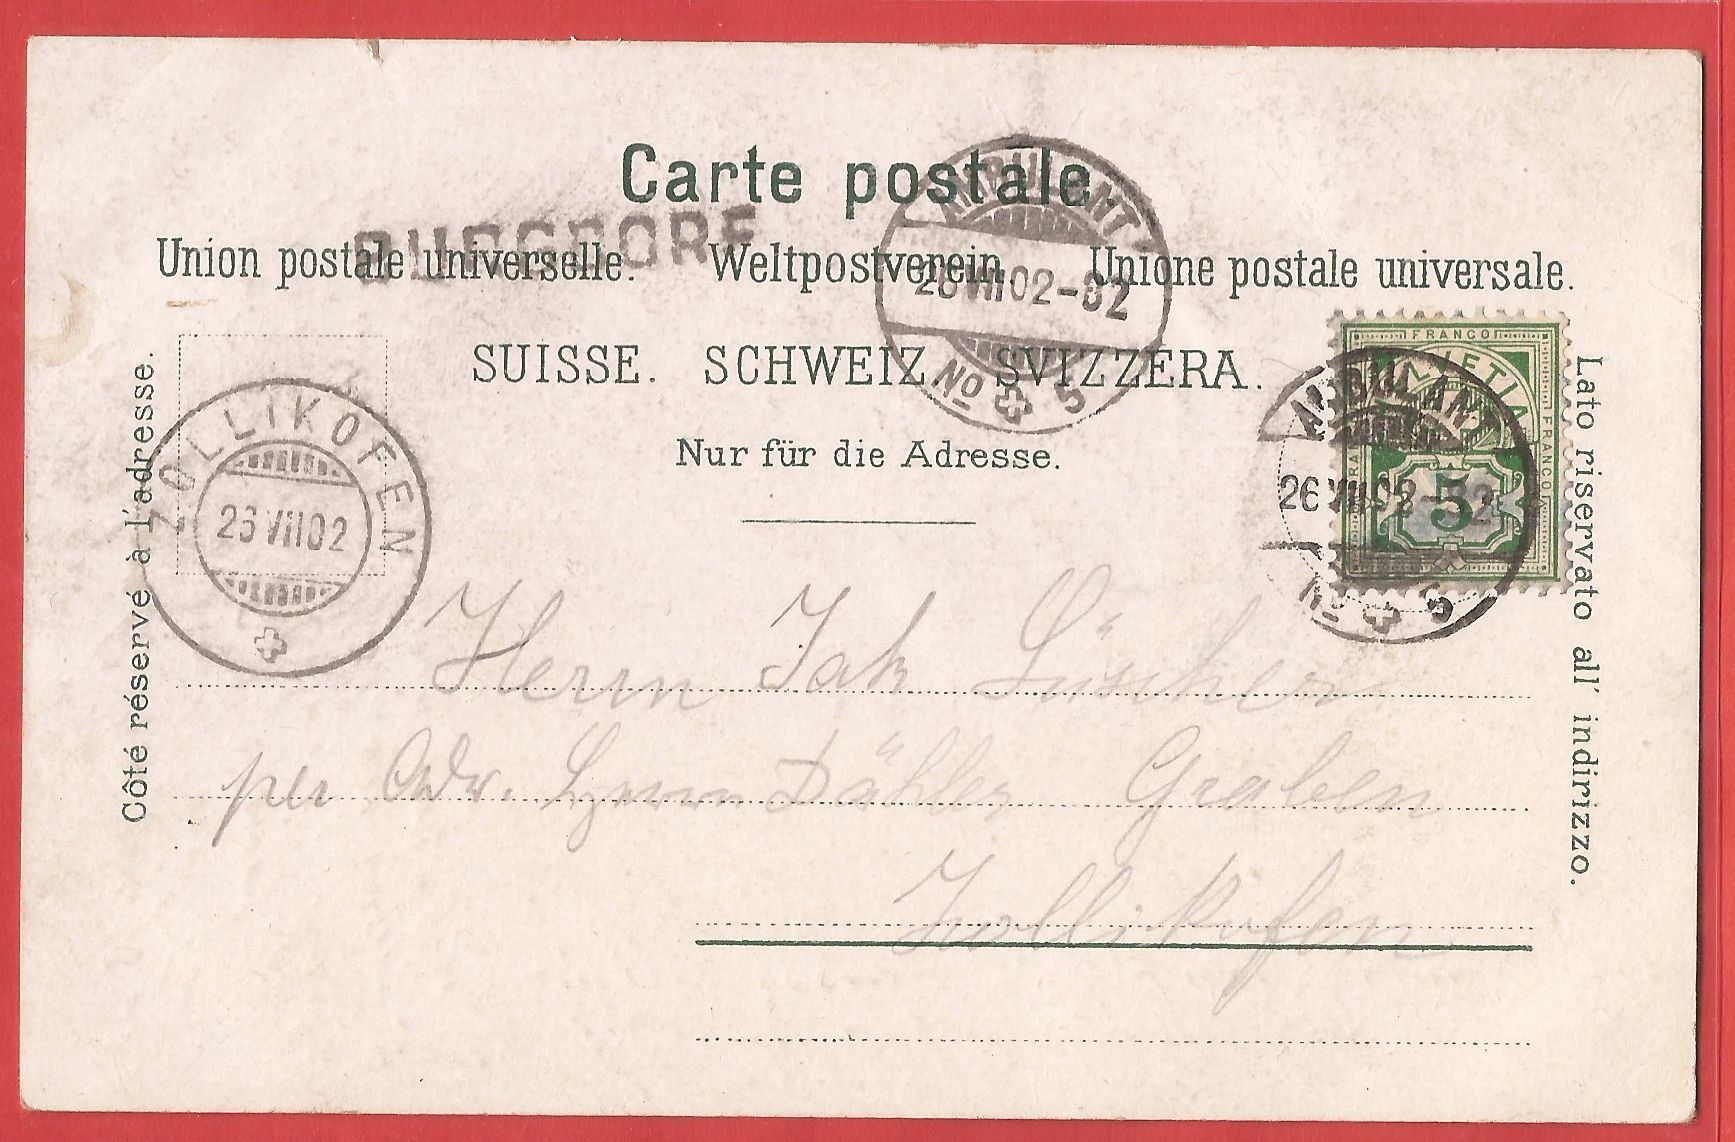 Carte postale.
BURGDORF
Union postale universelle. Weltpostverein. Unione postale universale.
SUISSE. SCHWEIZ. SVIZZERA.
Nur für die Adresse.
AMBULANT
26 VII 02 -
No 5
FRANCO
HELVETIA
FRANCO
FRANCO
5
AMBULANT
26 VII 02 -
No 5
ZOLLIKOFEN
26 VII 02
Côté réservé à l'adresse.
Lato riservato all' indirizzo.
Herrn Jak Lüscher
per Adr. Herrn Dähler Graben
Zollikofen